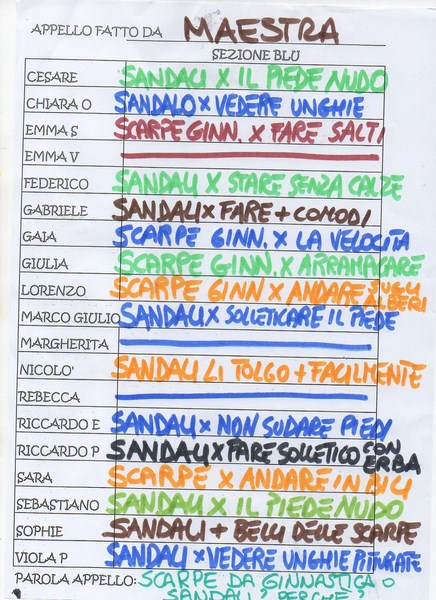 APPELLO FATTO DA MAESTRA
SEZIONE BLU
CESARE SANDALI X IL PIEDE NUDO
CHIARA O SANDALO X VEDERE UNGHIE
EMMA S SCARPE GINN. X FARE SALTI
EMMA V
FEDERICO SANDALI X STARE SENZA CALZE
GABRIELE SANDALI X FARE + COMODI
GAIA SCARPE GINN. X LA VELOCITA
GIULIA SCARPE GINN. X ARRAMPICARE
LORENZO SCARPE GINN X ANDARE SUGLI ALBERI
MARCO GIULIO SANDALI X SOLLETICARE IL PIEDE
MARGHERITA
NICOLO' SANDALI LI TOLGO + FACILMENTE
REBECCA
RICCARDO E SANDALI X NON SUDARE PIEDI
RICCARDO P SANDALI X FARE SOLLETICO CON ERBA
SARA SCARPE X ANDARE IN BICI
SEBASTIANO SANDALI X IL PIEDE NUDO
SOPHIE SANDALI + BELLI DELLE SCARPE
VIOLA P SANDALI X VEDERE UNGHIE PITTURATE
PAROLA APPELLO: SCARPE DA GINNASTICA O
SANDALI, PERCHE'